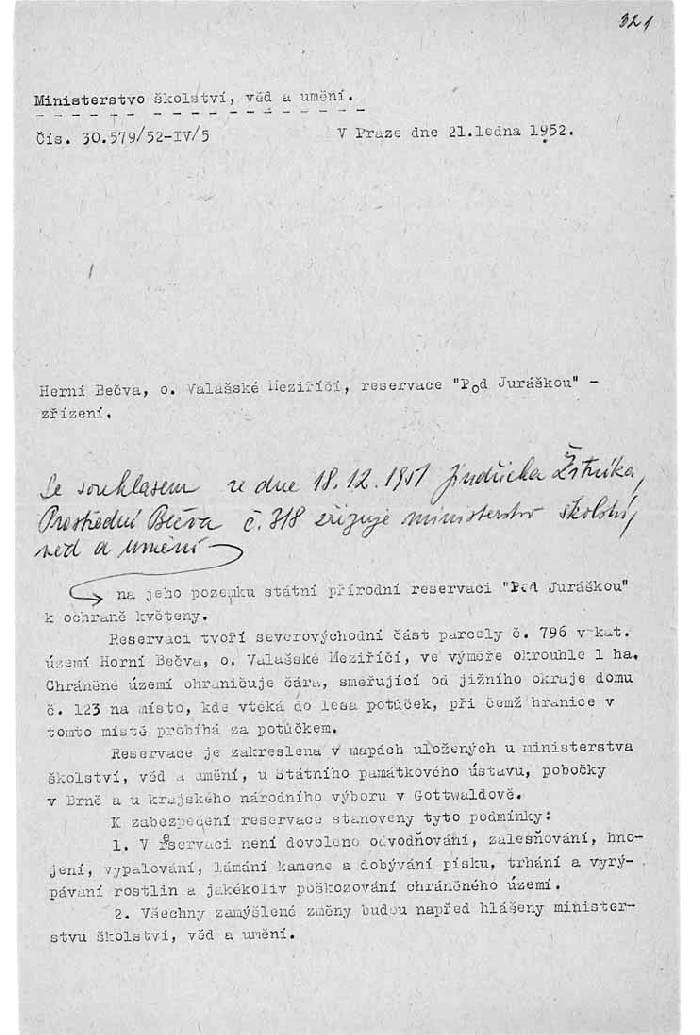 321
Ministerstvo školství, věd a umění.
Čís. 30.579/52-IV/5 V Praze dne 21.ledna 1952.
Horní Bečva, o. Valašské Meziříčí, reservace "Pod Juráškou" -
zřízení.
Se souhlasem ze dne 18.12.1951 Jindřicha
Prostřední Bečva č. 318 zřizuje ministerstvo školství,
věd a umění
na jeho pozemku státní přírodní reservaci "Pod Juráškou"
k ochraně květeny.
Reservaci tvoří severovýchodní část parcely č. 796 v kat.
území Horní Bečva, o. Valašské Meziříčí, ve výměře okrouhle 1 ha.
Chráněné území ohraničuje čára, směřující od jižního okraje domu
č. 123 na místo, kde vtéká do lesa potůček, při čemž hranice v
tomto místě probíhá za potůčkem.
Reservace je zakreslena v mapách uložených u ministerstva
školství, věd a umění, u státního památkového ústavu, pobočky
v Brně a u krajského národního výboru v Gottwaldově.
K zabezpečení reservace stanoveny tyto podmínky:
1. V reservaci není dovoleno odvodňování, zalesňování, hno-
jení, vypalování, lámání kamene a dobývání písku, trhání a vyrý-
pávání rostlin a jakékoliv poškozování chráněného území.
2. Všechny zamýšlené změny budou napřed hlášeny minister-
stvu školství, věd a umění.